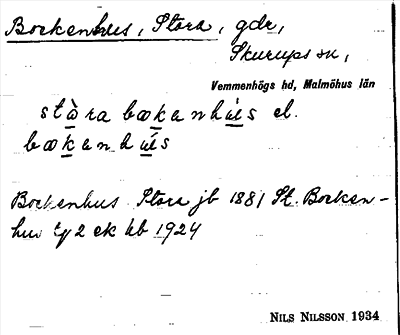 Bockenhus, Stora, gdr,
Skurups sn,
Vemmenhögs hd, Malmöhus län
stòra bœkenhús el.
bœkenhús
Bockenhus Stora jb 1881 St. Bocken-
hus 2 ek kb 1924
NILS NILSSON 1934